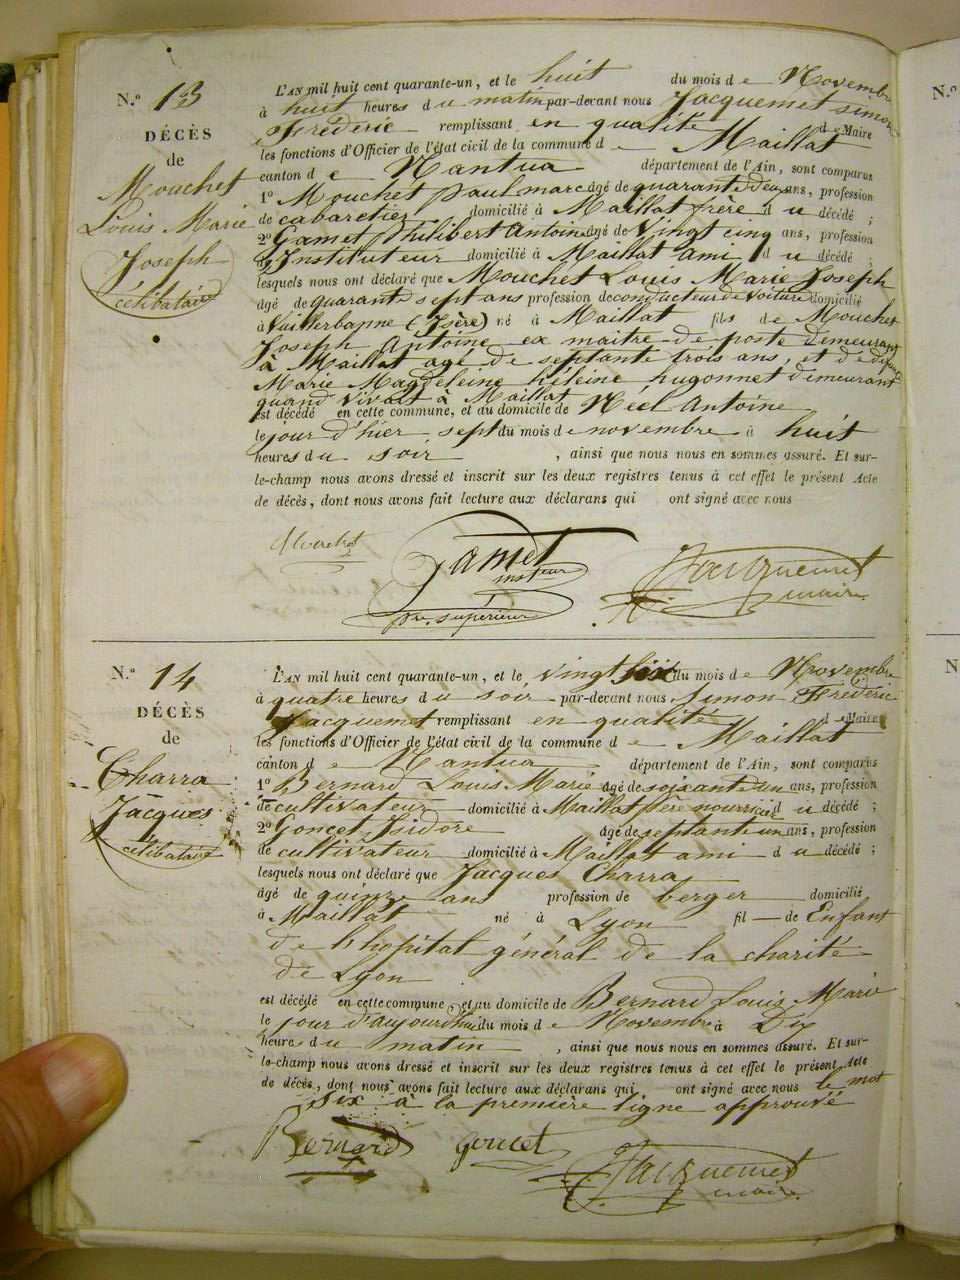 N.° 13
DÉCÈS
de
Mouchet
Louis Marie
Joseph
célibataire
L'AN mil huit cent quarante-un, et le huit du mois de Novembre
à huit heures du matin par-devant nous Jacquemet Simon
Fréderic remplissant en qualité de Maire
les fonctions d'Officier de l'état civil de la commune de Maillat
canton de Nantua département de l'Ain, sont comparus
1° Mouchet Paul marc âgé de quarante deux ans, profession
de cabaretier domicilié à Maillat frère du décédé ;
2° Gamet Philibert Antoine âgé de vingt cinq ans, profession
d'Instituteur domicilié à Maillat ami du décédé ;
lesquels nous ont déclaré que Mouchet Louis Marie Joseph
âgé de quarante sept ans profession de conducteur de voiture domicilié
à Vaillerbanne (Isère) né à Maillat fils de Mouchet
Joseph Antoine ex maitre de poste demeurant
à Maillat agé de septante trois ans, et de défunte
Marie Magdeleine héleine hugonnet demeurant
quand vivait à Maillat
est décédé en cette commune, et au domicile de Neel Antoine
le jour d'hier sept du mois de novembre à huit
heures du soir , ainsi que nous nous en sommes assuré. Et sur-
le-champ nous avons dressé et inscrit sur les deux registres tenus à cet effet le présent Acte
de décès, dont nous avons fait lecture aux déclarans qui ont signé avec nous
Mouchet Gamet Jacquemet
insteur maire
pre. supérieur
N.° 14
DÉCÈS
de
Charra
Jacques
célibataire
L'AN mil huit cent quarante-un, et le vingt six du mois de Novembre
à quatre heures du soir par-devant nous Simon Fréderic
Jacquemet remplissant en qualité de Maire
les fonctions d'Officier de l'état civil de la commune de Maillat
canton de Nantua département de l'Ain, sont comparus
1° Bernard Louis Marie âgé de soixante un ans, profession
de cultivateur domicilié à Maillat père nourricier du décédé ;
2° Goncet Isidore âgé de septante un ans, profession
de cultivateur domicilié à Maillat ami du décédé ;
lesquels nous ont déclaré que Jacques Charra
âgé de quinze ans profession de berger domicilié
à Maillat né à Lyon fil — de Enfant
de l'hopital général de la charité
de Lyon
est décédé en cette commune, et au domicile de Bernard Louis Marie
le jour d'aujourd'hui du mois de Novembre à Dix
heures du matin , ainsi que nous nous en sommes assuré. Et sur-
le-champ nous avons dressé et inscrit sur les deux registres tenus à cet effet le présent Acte
de décès, dont nous avons fait lecture aux déclarans qui ont signé avec nous le mot
six à la première ligne approuvé
Bernard goncet Jacquemet
maire
N.°
N.